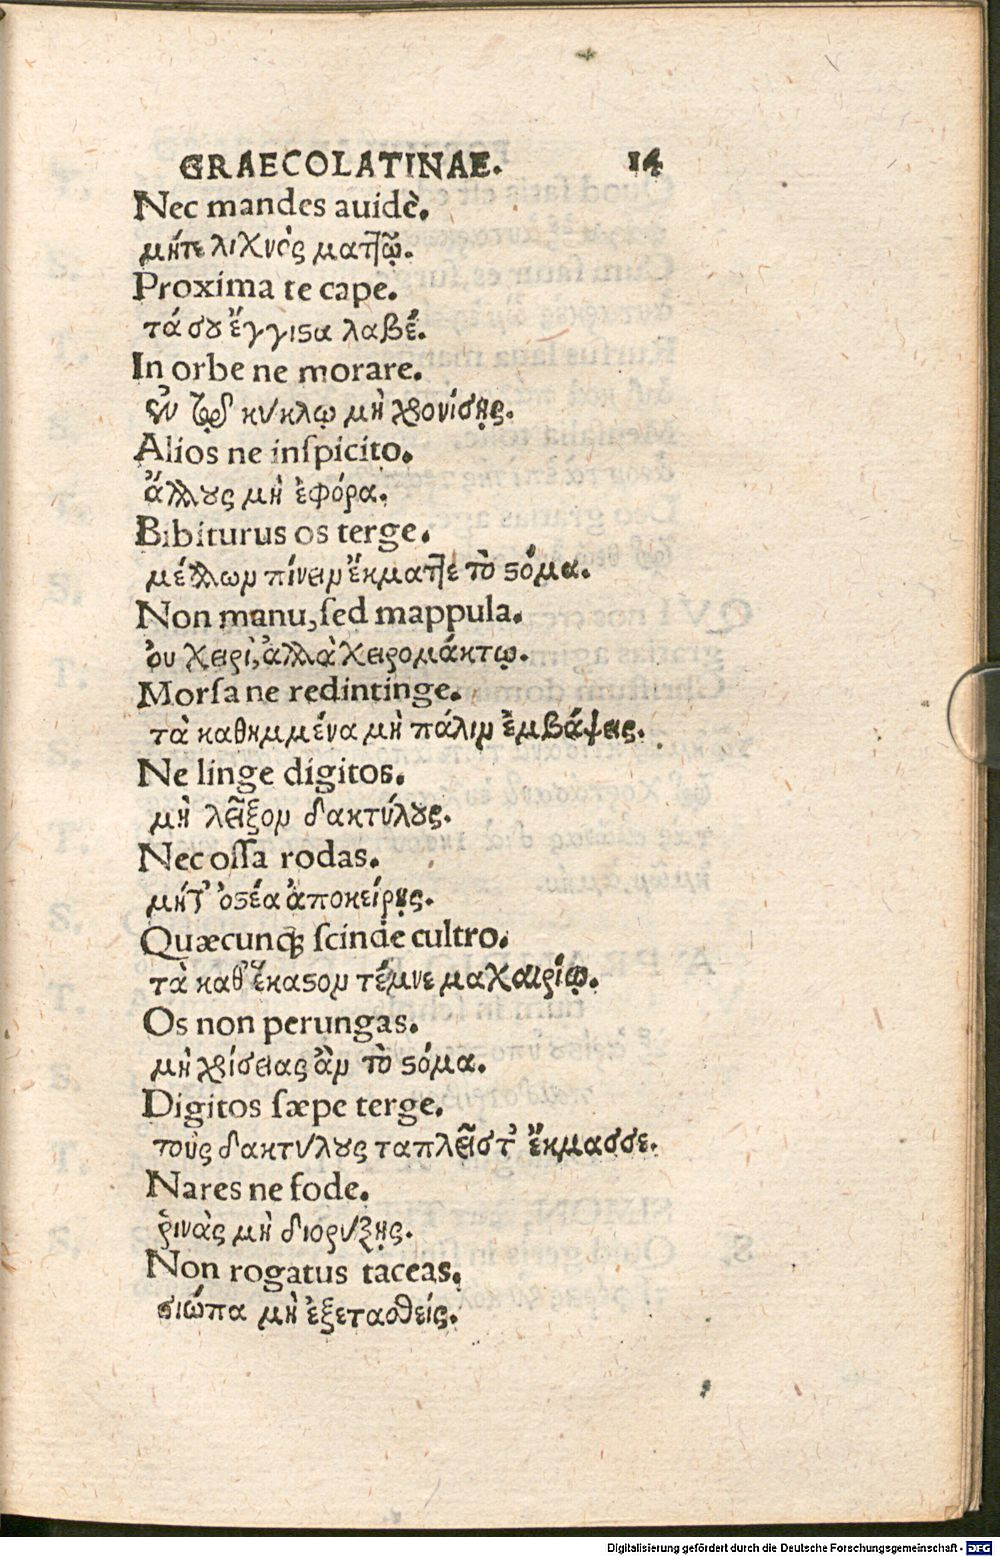 GRAECOLATINAE. 14
Nec mandes auidè.
μήτε λιχνὸς ματ]ῷ.
Proxima te cape.
τά σου ἔγγιϛα λαβέ.
In orbe ne morare.
ἐν τῷ κύκλῳ μὴ χρονίσῃς.
Alios ne inſpicito.
ἄλλους μὴ ἐφόρα.
Bibiturus os terge.
μέλλων πίνειν ἔκματ]ε τὸ ϛόμα.
Non manu, ſed mappula.
ὀυ χειρὶ, ἀλλὰ χειρομάκτῳ.
Morſa ne redintinge.
τὰ καθημμένα μὴ πάλιν ἐμβάψεις.
Ne linge digitos.
μὴ λεῖξον δακτύλους.
Nec oſſa rodas.
μήτ' ὀϛέα ἀποκείρῃς.
Quæcunq; ſcinde cultro.
τὰ καθ' ἕκαϛον τέμνε μαχαιρίῳ.
Os non perungas.
μὴ χρίσειας ἂν τὸ ϛόμα.
Digitos ſæpe terge.
τοὺς δακτύλους ταπλεῖστ' ἔκμασσε.
Nares ne fode.
ῥινὰς μὴ διορύξῃς.
Non rogatus taceas.
σιώπα μὴ ἐξετασθείς.
Digitalisierung gefördert durch die Deutsche Forschungsgemeinschaft - DFG